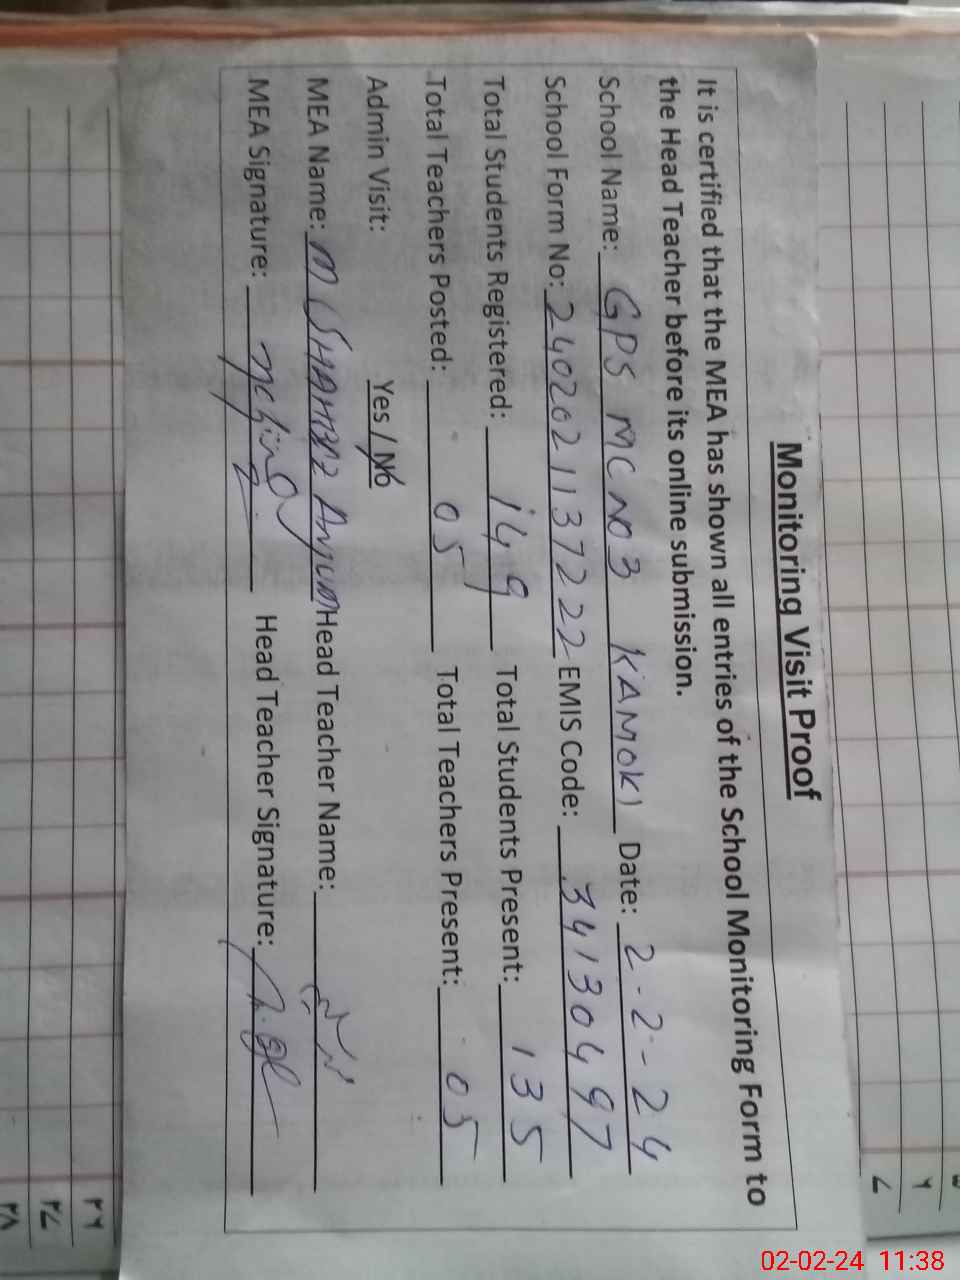 Monitoring Visit Proof
It is certified that the MEA has shown all entries of the School Monitoring Form to
the Head Teacher before its online submission.
School Name: GPS MC NO 3 KAMOKI Date: 2-2-24
School Form No: 2402021137222 EMIS Code: 34130497
Total Students Registered: 149 Total Students Present: 135
Total Teachers Posted: 05 Total Teachers Present: 05
Admin Visit: Yes / No
MEA Name: M SHAHBAZ Anjum Head Teacher Name:
MEA Signature: Head Teacher Signature:
۲
۷
۲۶
۲۷
۲۸
02-02-24 11:38